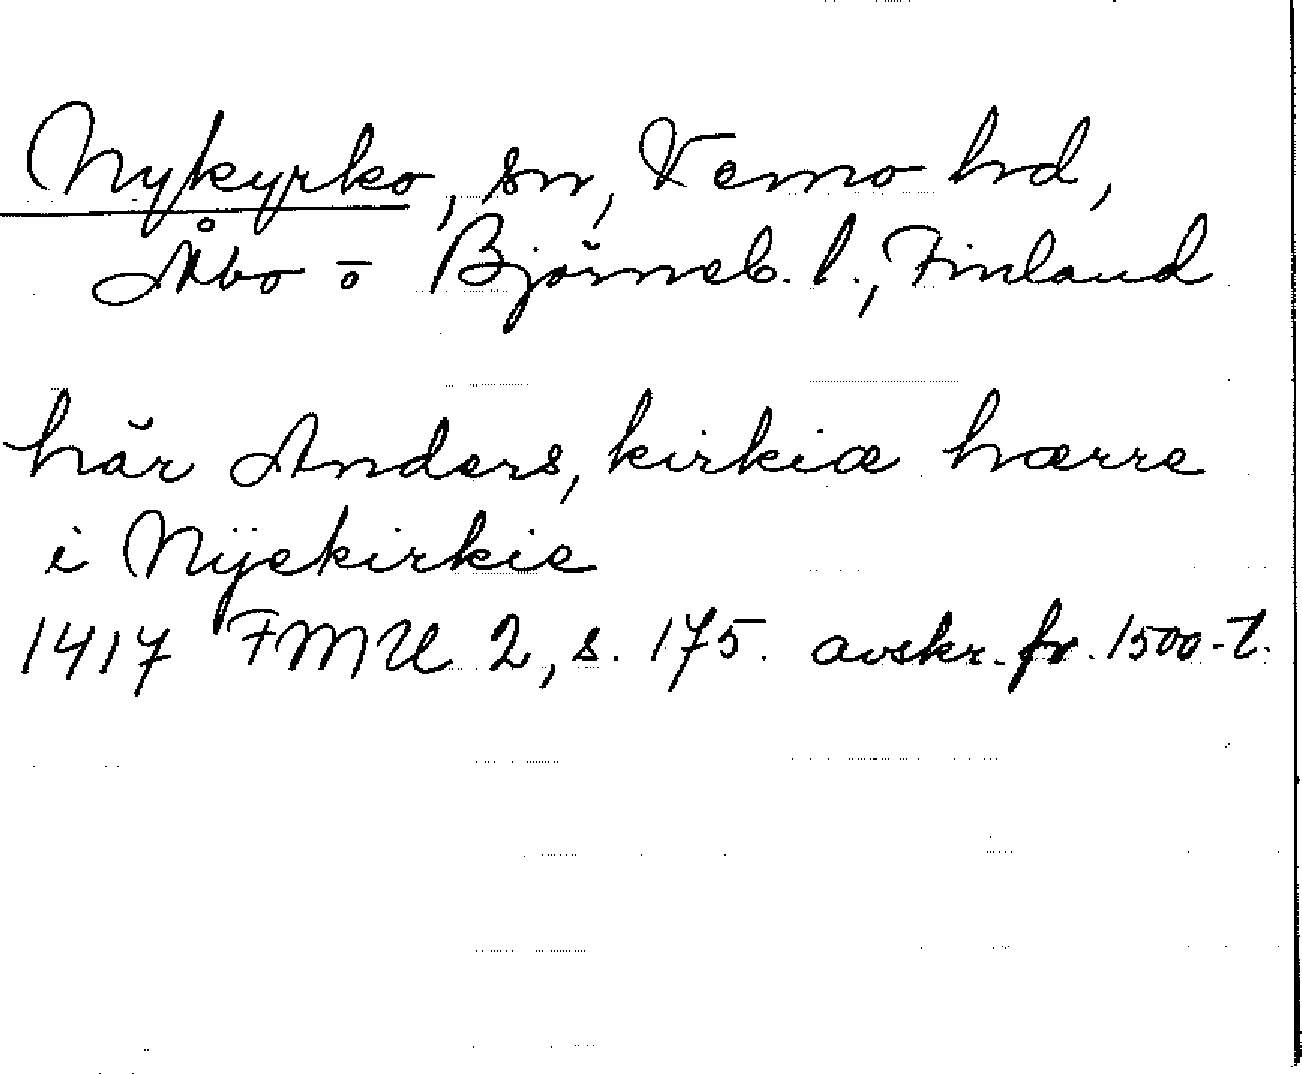 Nykyrko, sn, Vemo hd,
Åbo o Björneb. l., Finland
här Anders, kirkiæ hærre
i Nijekirkie
1417 FMU 2, s. 175. avskr. fr. 1500-t.